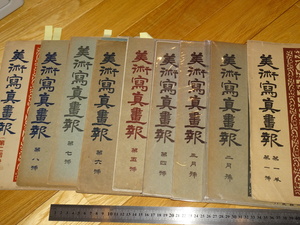 美術寫真畫報
第一卷
第一號
美術寫真畫報
二月號
美術寫真畫報
三月號
美術寫真畫報
第四號
美術寫真畫報
第五號
美術寫真畫報
第六號
美術寫真畫報
第七號
美術寫真畫報
第八號
美術寫真畫報